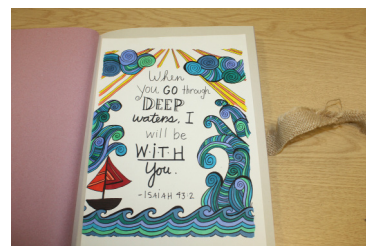 When
you GO through
DEEP
waters, I
will be
WITH
You.
- ISAIAH 43:2